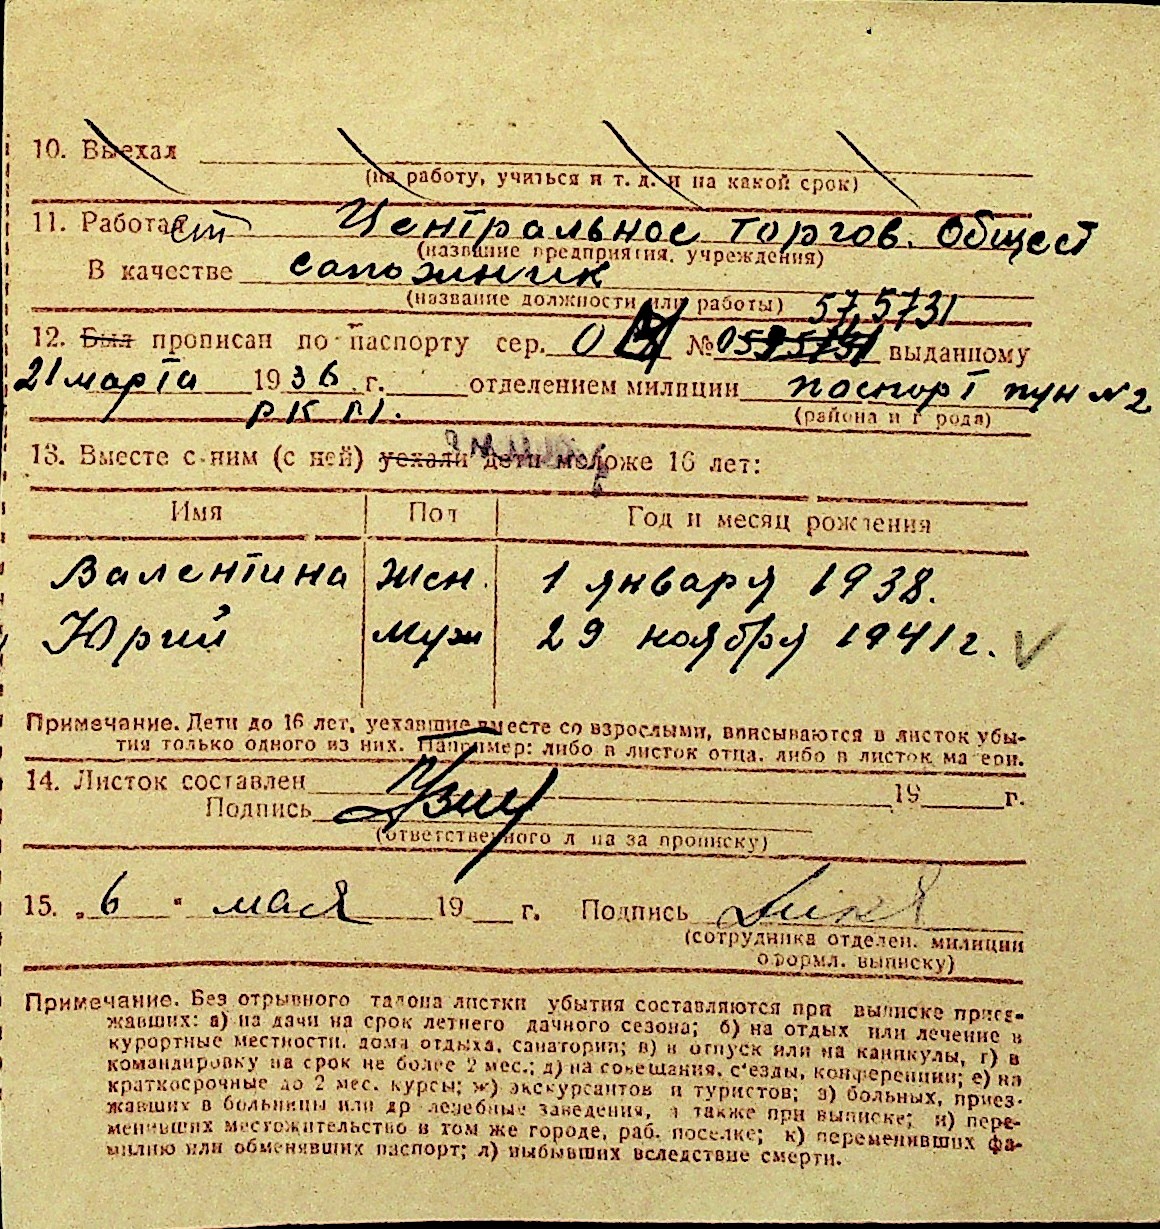 10. Выехал
(на работу, учиться и т. д. и на какой срок)
11. Работает Центральное торгов. Общест
(название предприятия, учреждения)
В качестве сапожник
(название должности или работы) 575731
12. Был прописан по паспорту сер. О № выданному
21 марта 1936 г. отделением милиции паспорт пун №2
Р К М. (района и города)
13. Вместе с ним (с ней) уехали дети моложе 16 лет:
Имя Пол Год и месяц рождения
Валентина Жен. 1 января 1938.
Юрий муж 29 ноября 1941 г. V
Примечание. Дети до 16 лет, уехавшие вместе со взрослыми, вписываются в листок убы-
тия только одного из них. Например: либо в листок отца, либо в листок матери.
14. Листок составлен 19 г.
Подпись
(ответственного лица за прописку)
15. „ 6 " мая 19 г. Подпись
(сотрудника отделен. милиции
оформл. выписку)
Примечание. Без отрывного талона листки убытия составляются при выписке приез-
жавших: а) на дачи на срок летнего дачного сезона; б) на отдых или лечение в
курортные местности, дома отдыха, санатории; в) в отпуск или на каникулы, г) в
командировку на срок не более 2 мес.; д) на совещания, с'езды, конференции; е) на
краткосрочные до 2 мес. курсы; ж) экскурсантов и туристов; з) больных, приез-
жавших в больницы или др лечебные заведения, а также при выписке; и) пере-
менивших местожительство в том же городе, раб. поселке; к) переменивших фа-
милию или обменявших паспорт; л) выбывших вследствие смерти.